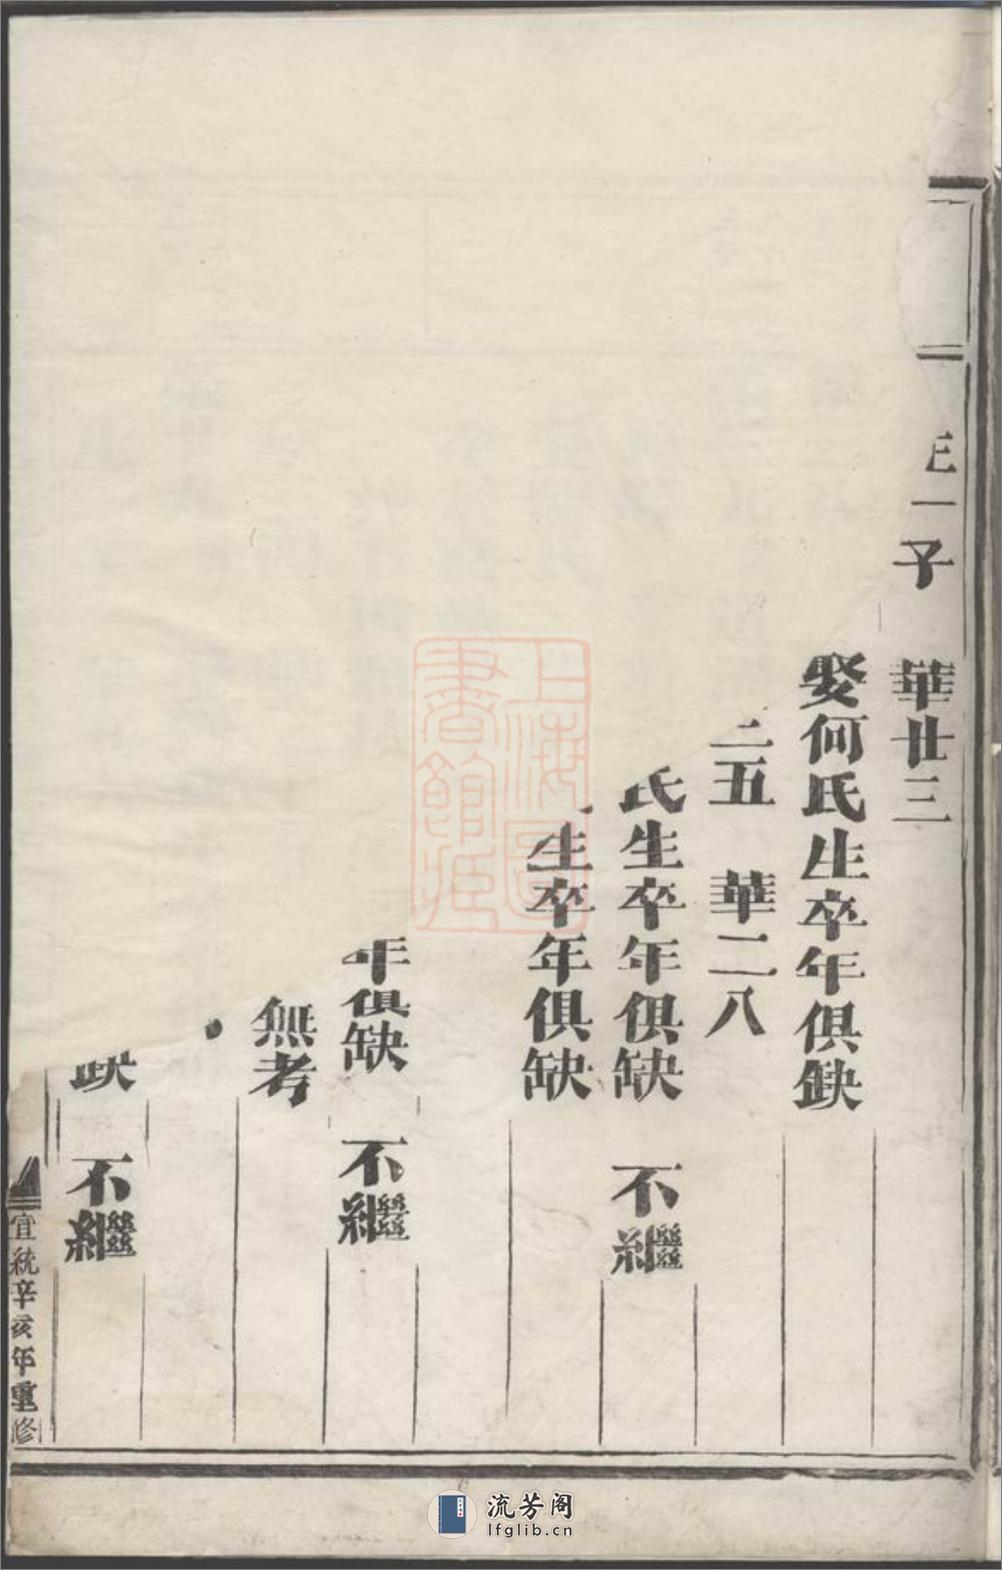 生一子　華廿三
娶何氏生卒年俱缺
二五　華二八
氏生卒年俱缺　不繼
生卒年俱缺
年俱缺　不繼
無考
缺　不繼
宣統辛亥年重修
上海圖書館藏
流芳阁
lfglib.cn